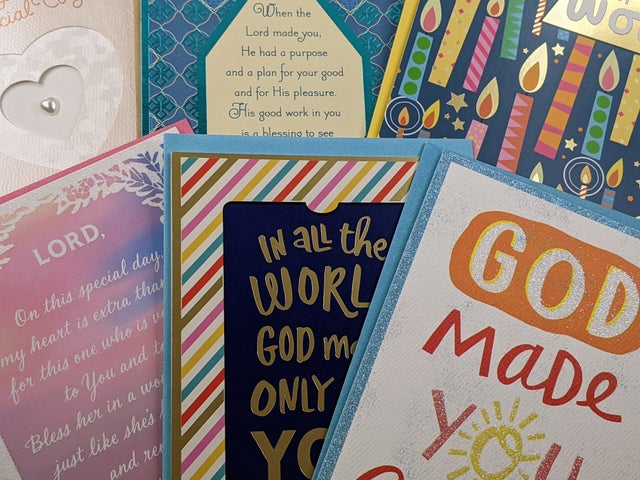 When the
Lord made you,
He had a purpose
and a plan for your good
and for His pleasure.
His good work in you
is a blessing to see
LORD,
On this special day,
my heart is extra
for this one who is
to You and
Bless her in a
just like she's
and
IN all the
WORL
GOD
ONLY
YO
GOD
MaDe
YOU